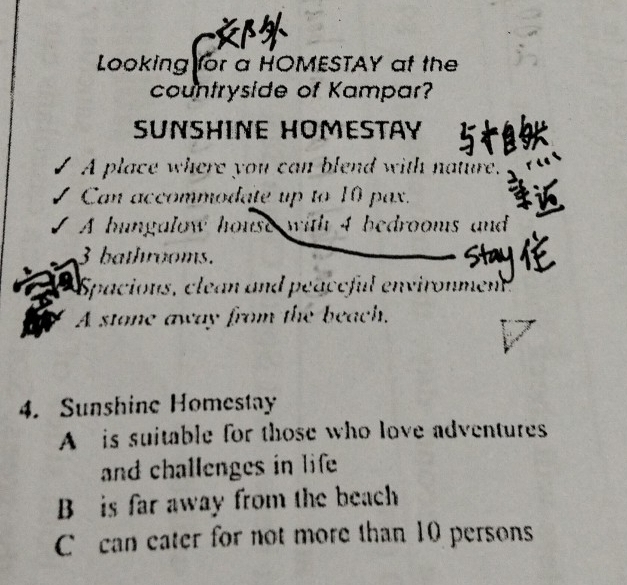 郊外
Looking for a HOMESTAY at the
countryside of Kampar?
SUNSHINE HOMESTAY
与大自然
✓ A place where you can blend with nature.
亲近
✓ Can accommodate up to 10 pax.
✓ A bungalow house with 4 bedrooms and
3 bathrooms.
stay 住
空间
Spacious, clean and peaceful environment.
A stone away from the beach.
4. Sunshine Homestay
A is suitable for those who love adventures
and challenges in life
B is far away from the beach
C can cater for not more than 10 persons